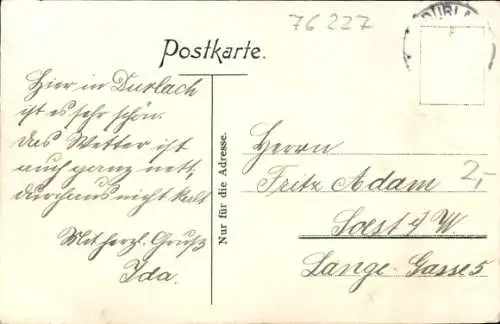 76227
DURLA
Postkarte.
Hier in Durlach
ist es sehr schön.
Das Wetter ist
auch ganz nett,
durchaus nicht kalt
Mit herzl. Gruß
Ida.
Nur für die Adresse.
Herrn
Fritz Adam
2,-
Soest i/W.
Lange-Gasse 5